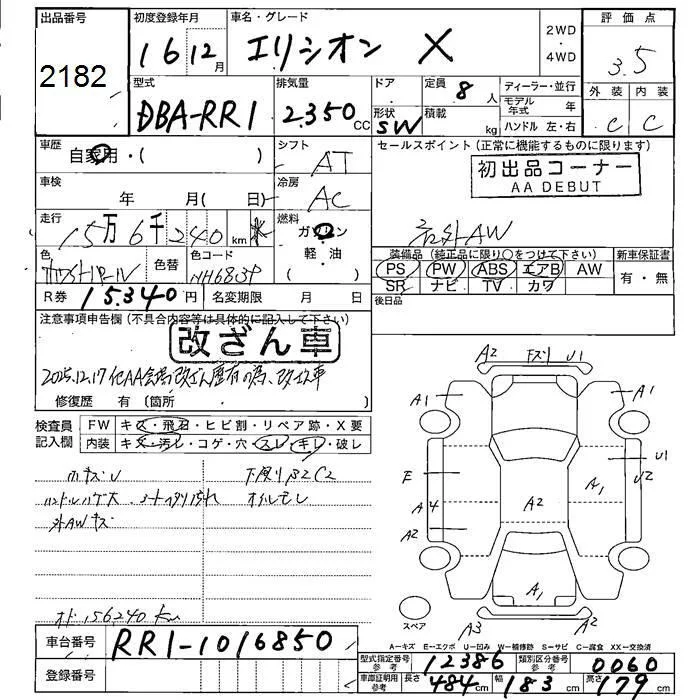 出品番号
2182
初度登録年月
16 12月
車名・グレード
エリシオン X
2WD
・
4WD
評価点
3.5
外装 内装
C C
型式
DBA-RR1
排気量
2.350CC
ドア
形状
SW
定員
8人
積載
kg
ディーラー・並行
モデル年式 年
ハンドル 左・右
車歴
自家用・( )
シフト
AT
セールスポイント(正常に機能するものに限ります)
初出品コーナー
AA DEBUT
車検
年 月( 日)
冷房
AC
走行
15万6千240km
燃料
ガソリン
軽・油
( )
社外AW
色
色替
色コード
NH683P
装備品(純正品に限り○をつけて下さい)
PS PW ABS エアB AW
SR ナビ TV カワ
新車保証書
有・無
R券 15.340円
名変期限 月 日
後日品
注意事項申告欄(不具合内容等は具体的に記入して下さい)
改ざん車
2025.12.17 他AA会場改ざん歴有の為、改ざん車
修復歴 有(箇所 )
検査員記入欄
FW キズ・飛石・ヒビ割・リペア跡・X要
内装 キズ・汚レ・コゲ・穴・スレ・キレ・破レ
小キズU
下廻りサビC2
ハンドルハゲ大
オイルモレ
外AWキズ
メーター 156240km
A2 下ズリ U1
A1 A1
E U1
U2
A4 A2 A1
A2
A1
スペア
A3 A2
A-キズ E-エクボ U-凹み W-補修跡 S-サビ C-腐食 XX-交換済
車台番号
RR1-1016850
登録番号
型式指定番号参考 12386
類別区分番号参考 0060
車庫証明用参考 長さ 484cm 幅 183cm 高さ 179cm